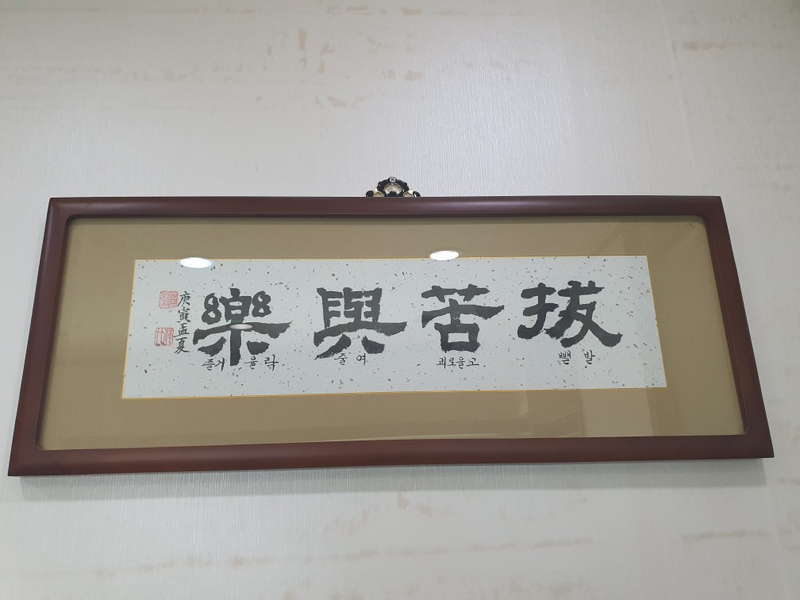 拔苦與樂
뺄 발
괴로울 고
줄 여
즐거울 락
庚寅孟夏